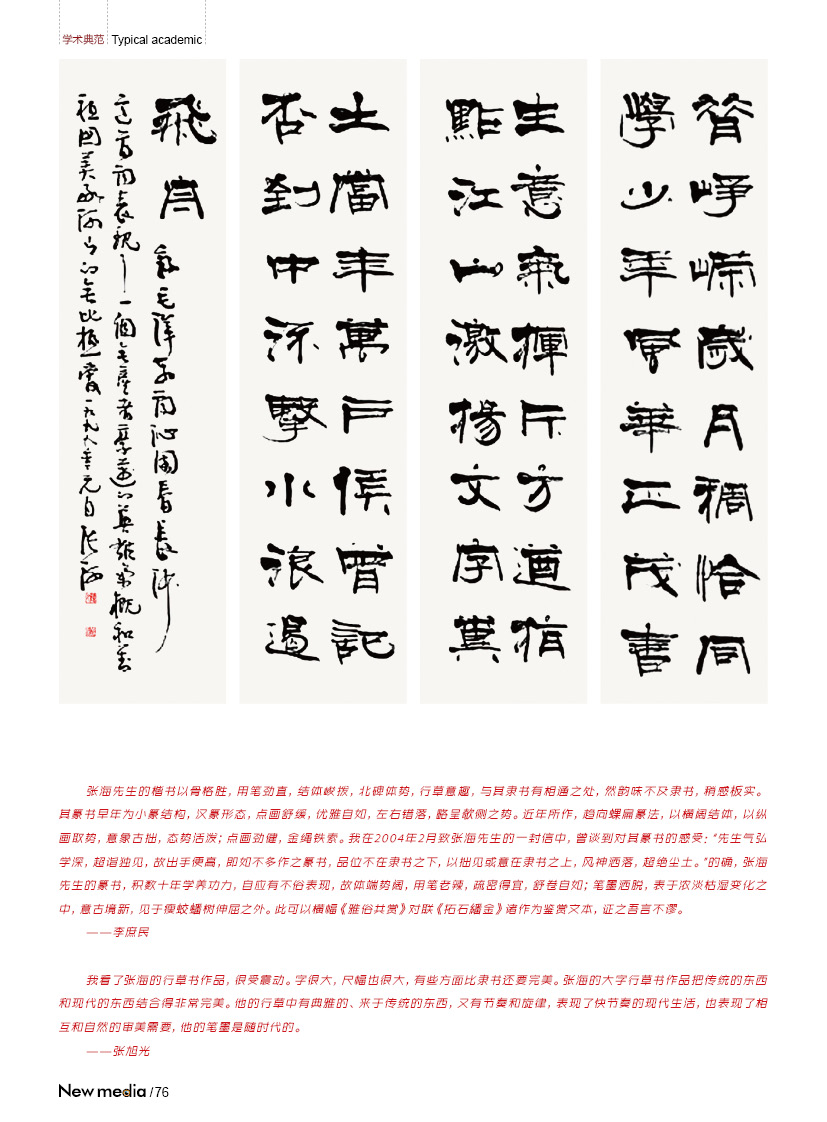 学术典范 Typical academic
昔崢嶸歲月稠恰同
學少年風華正茂書
生意氣揮斥方遒指
點江山激揚文字糞
土當年萬戶侯曾記
否到中流擊水浪遏
飛舟 毛澤東詞沁園春長沙
這首詞表現了一個無產者豪邁的英雄氣概和對
祖國美好河山的無比熱愛一九九八年元旦張海
张海先生的楷书以骨格胜，用笔劲直，结体峻拔，北碑体势，行草意趣，与其隶书有相通之处，然韵味不及隶书，稍感板实。
其篆书早年为小篆结构，汉篆形态，点画舒缓，优雅自如，左右错落，略呈欹侧之势。近年所作，趋向螺扁篆法，以横阔结体，以纵
画取势，意象古拙，态势活泼；点画劲健，金绳铁索。我在2004年2月致张海先生的一封信中，曾谈到对其篆书的感受：“先生气弘
学深，超诣独见，故出手便高，即如不多作之篆书，品位不在隶书之下，以拙见或意在隶书之上，风神洒落，超绝尘土。”的确，张海
先生的篆书，积数十年学养功力，自应有不俗表现，故体端势阔，用笔老辣，疏密得宜，舒卷自如；笔墨洒脱，表于浓淡枯湿变化之
中，意古境新，见于瘦蛟蟠树伸屈之外。此可以横幅《雅俗共赏》对联《拓石缙金》诸作为鉴赏文本，证之吾言不谬。
——李庶民
我看了张海的行草书作品，很受震动。字很大，尺幅也很大，有些方面比隶书还要完美。张海的大字行草书作品把传统的东西
和现代的东西结合得非常完美。他的行草中有典雅的、来于传统的东西，又有节奏和旋律，表现了快节奏的现代生活，也表现了相
互和自然的审美需要，他的笔墨是随时代的。
——张旭光
New media /76